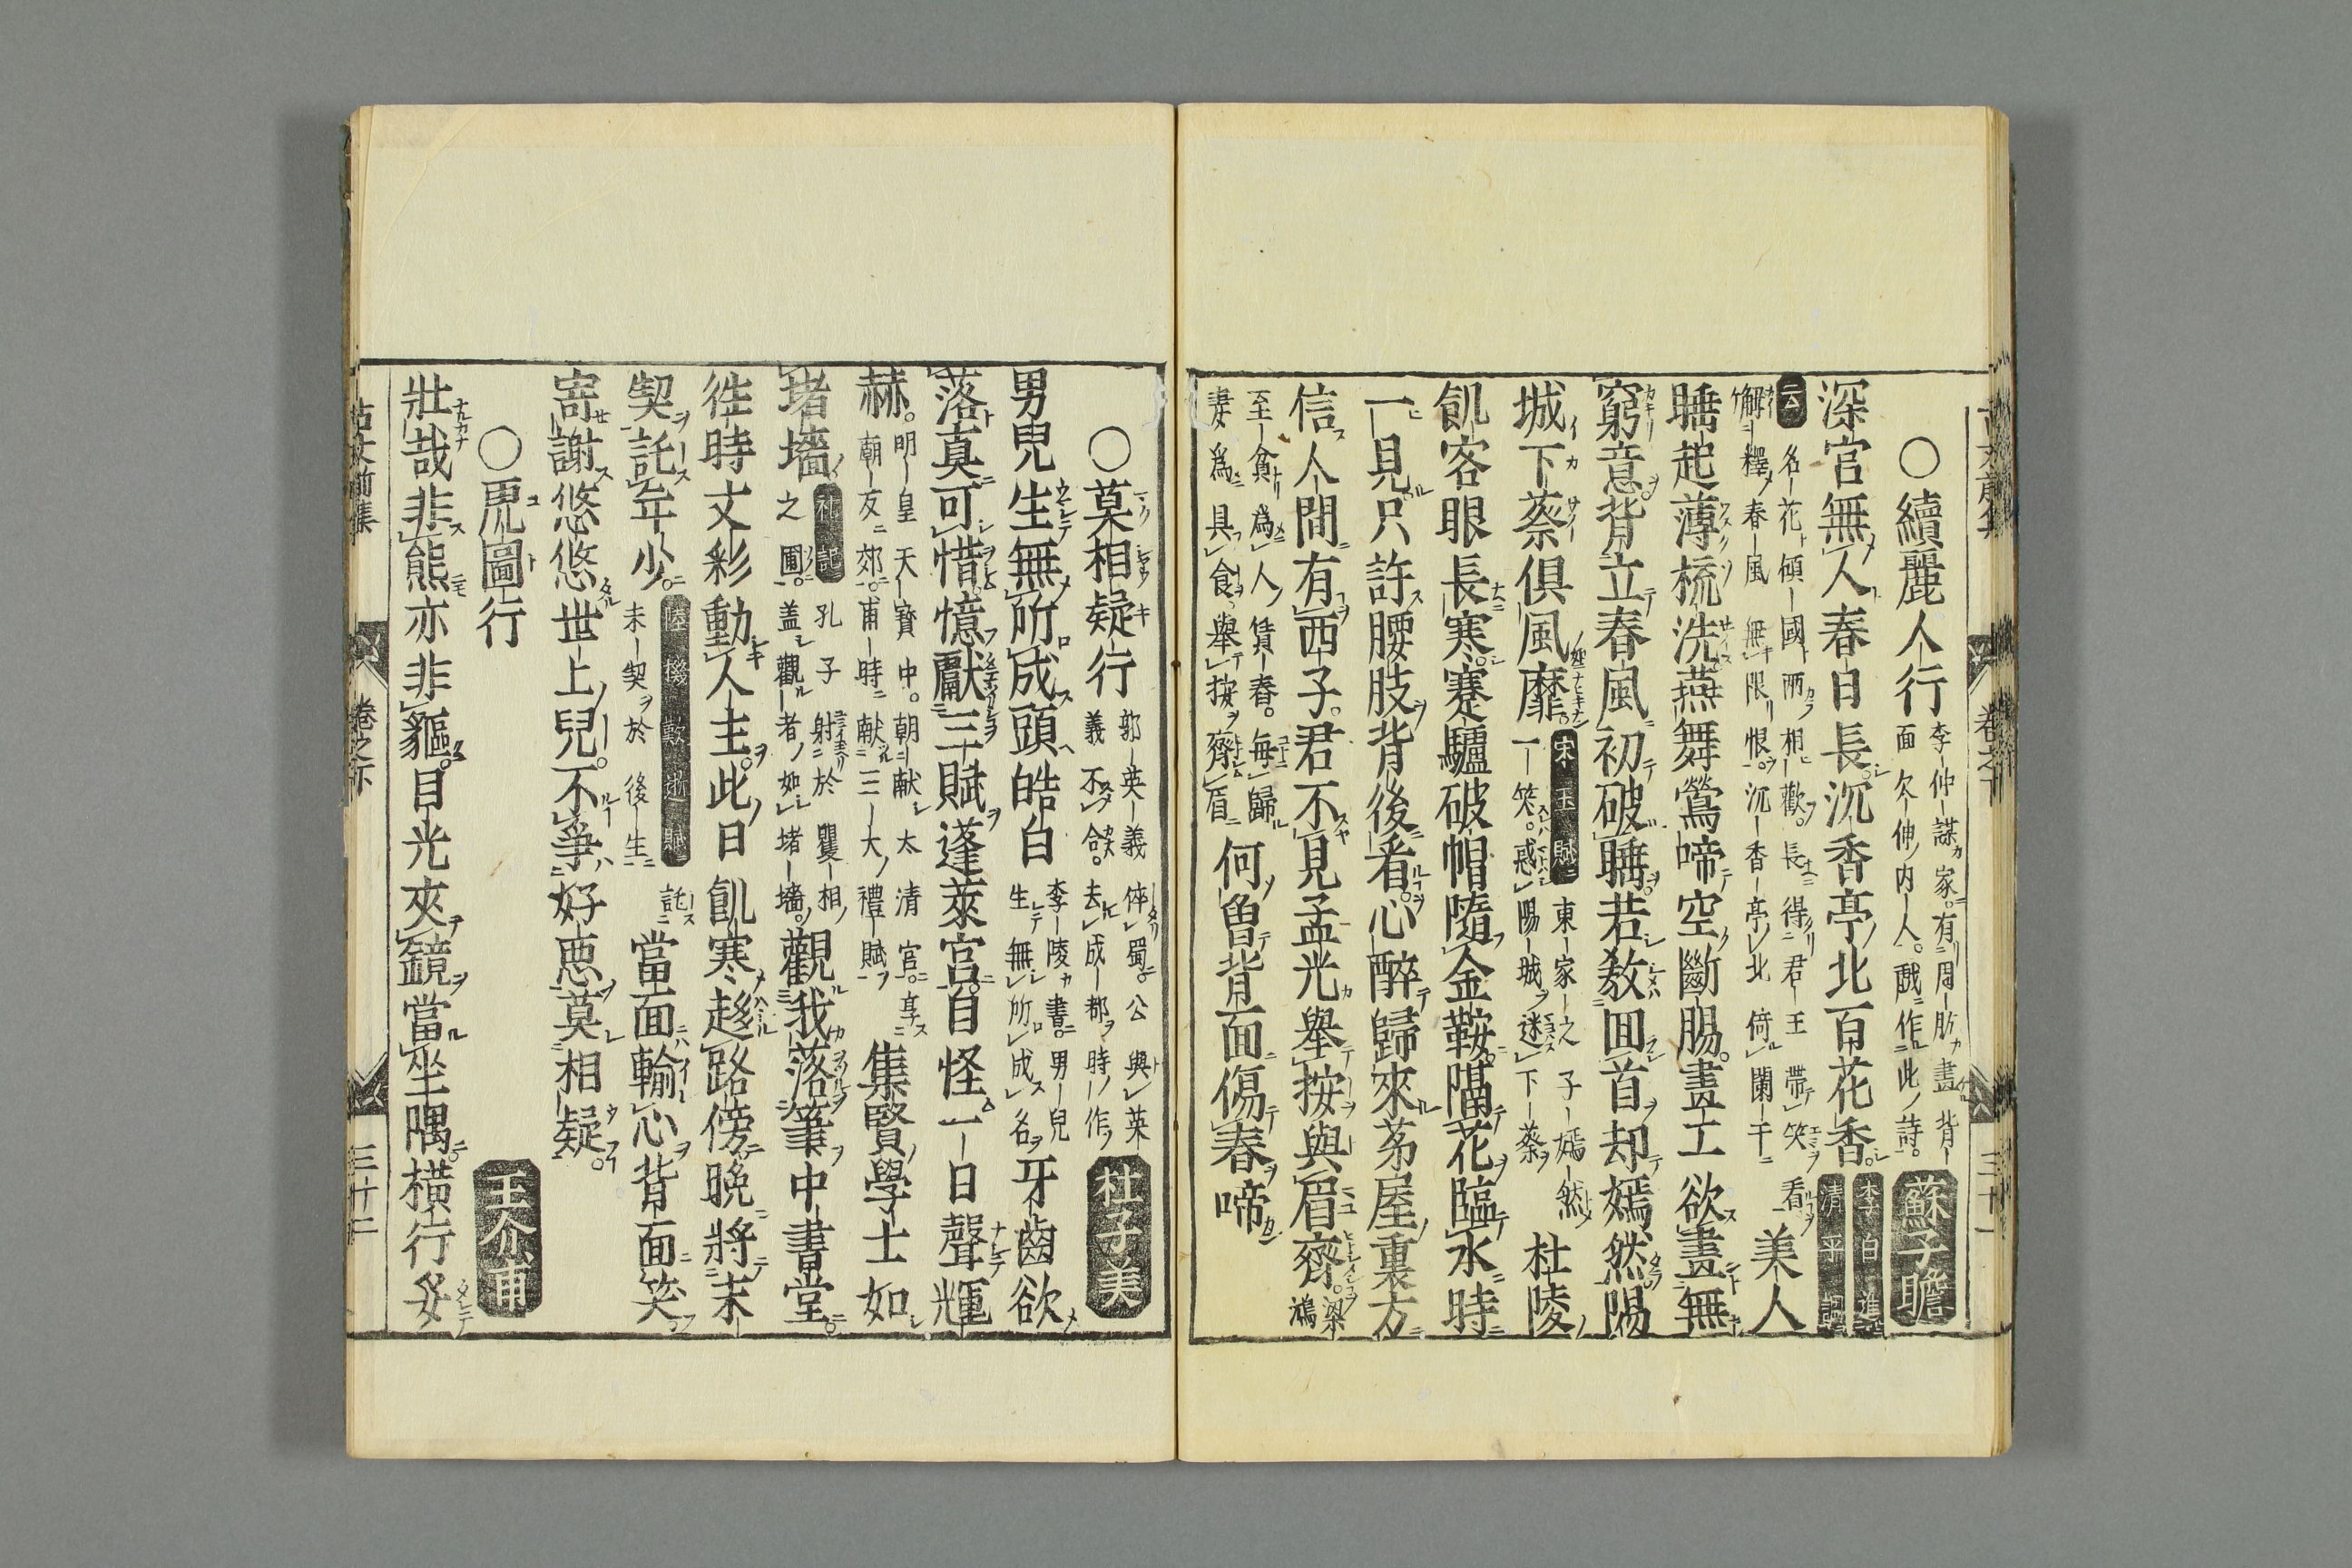 ○續麗人行 李仲謀家有周昉畫背面欠伸内人戯作此詩 蘇子瞻
深宮無人春日長沉香亭北百花香 李白進清平調
云 名花傾國兩相歡長得君王帶笑看解釋春風無限恨沉香亭北倚闌干 美人
睡起薄梳洗燕舞鶯啼空斷腸畫工欲畫無
窮意背立春風初破睡若教囬首却嫣然陽
城下蔡俱風靡 宋玉賦 東家之子嫣然一笑惑陽城迷下蔡 杜陵
飢客眼長寒蹇驢破帽隨金鞍隔花臨水時
一見只許腰肢背後看心醉歸來茅屋裏方
信人間有西子君不見孟光舉按與眉齊 梁鴻
至貧爲人賃舂每歸妻爲具食舉按齊眉 何曽背面傷春啼
古文前集 卷之下 三十一
○莫相疑行 郭英義倅蜀公與英義不合去成都時作 杜子美
男兒生無所成頭皓白 李陵書男兒生無所成名 牙齒欲
落真可惜憶獻三賦蓬萊宮自怪一日聲輝
赫 明皇天寳中朝献太清宮享朝友郊甫時献三大禮賦 集賢學士如
堵墻 礼記 孔子射於矍相之圃盖觀者如堵墻 觀我落筆中書堂
徃時文彩動人主此日飢寒趍路傍晚將末
契託年少 陸機歎逝賦 託末契於後生 當面輸心背面笑
寄謝悠悠世上兒不爭好惡莫相疑
○虎圖行 王介甫
壯哉非熊亦非貙目光夾鏡當坐隅横行妥
古文前集 卷之下 三十二